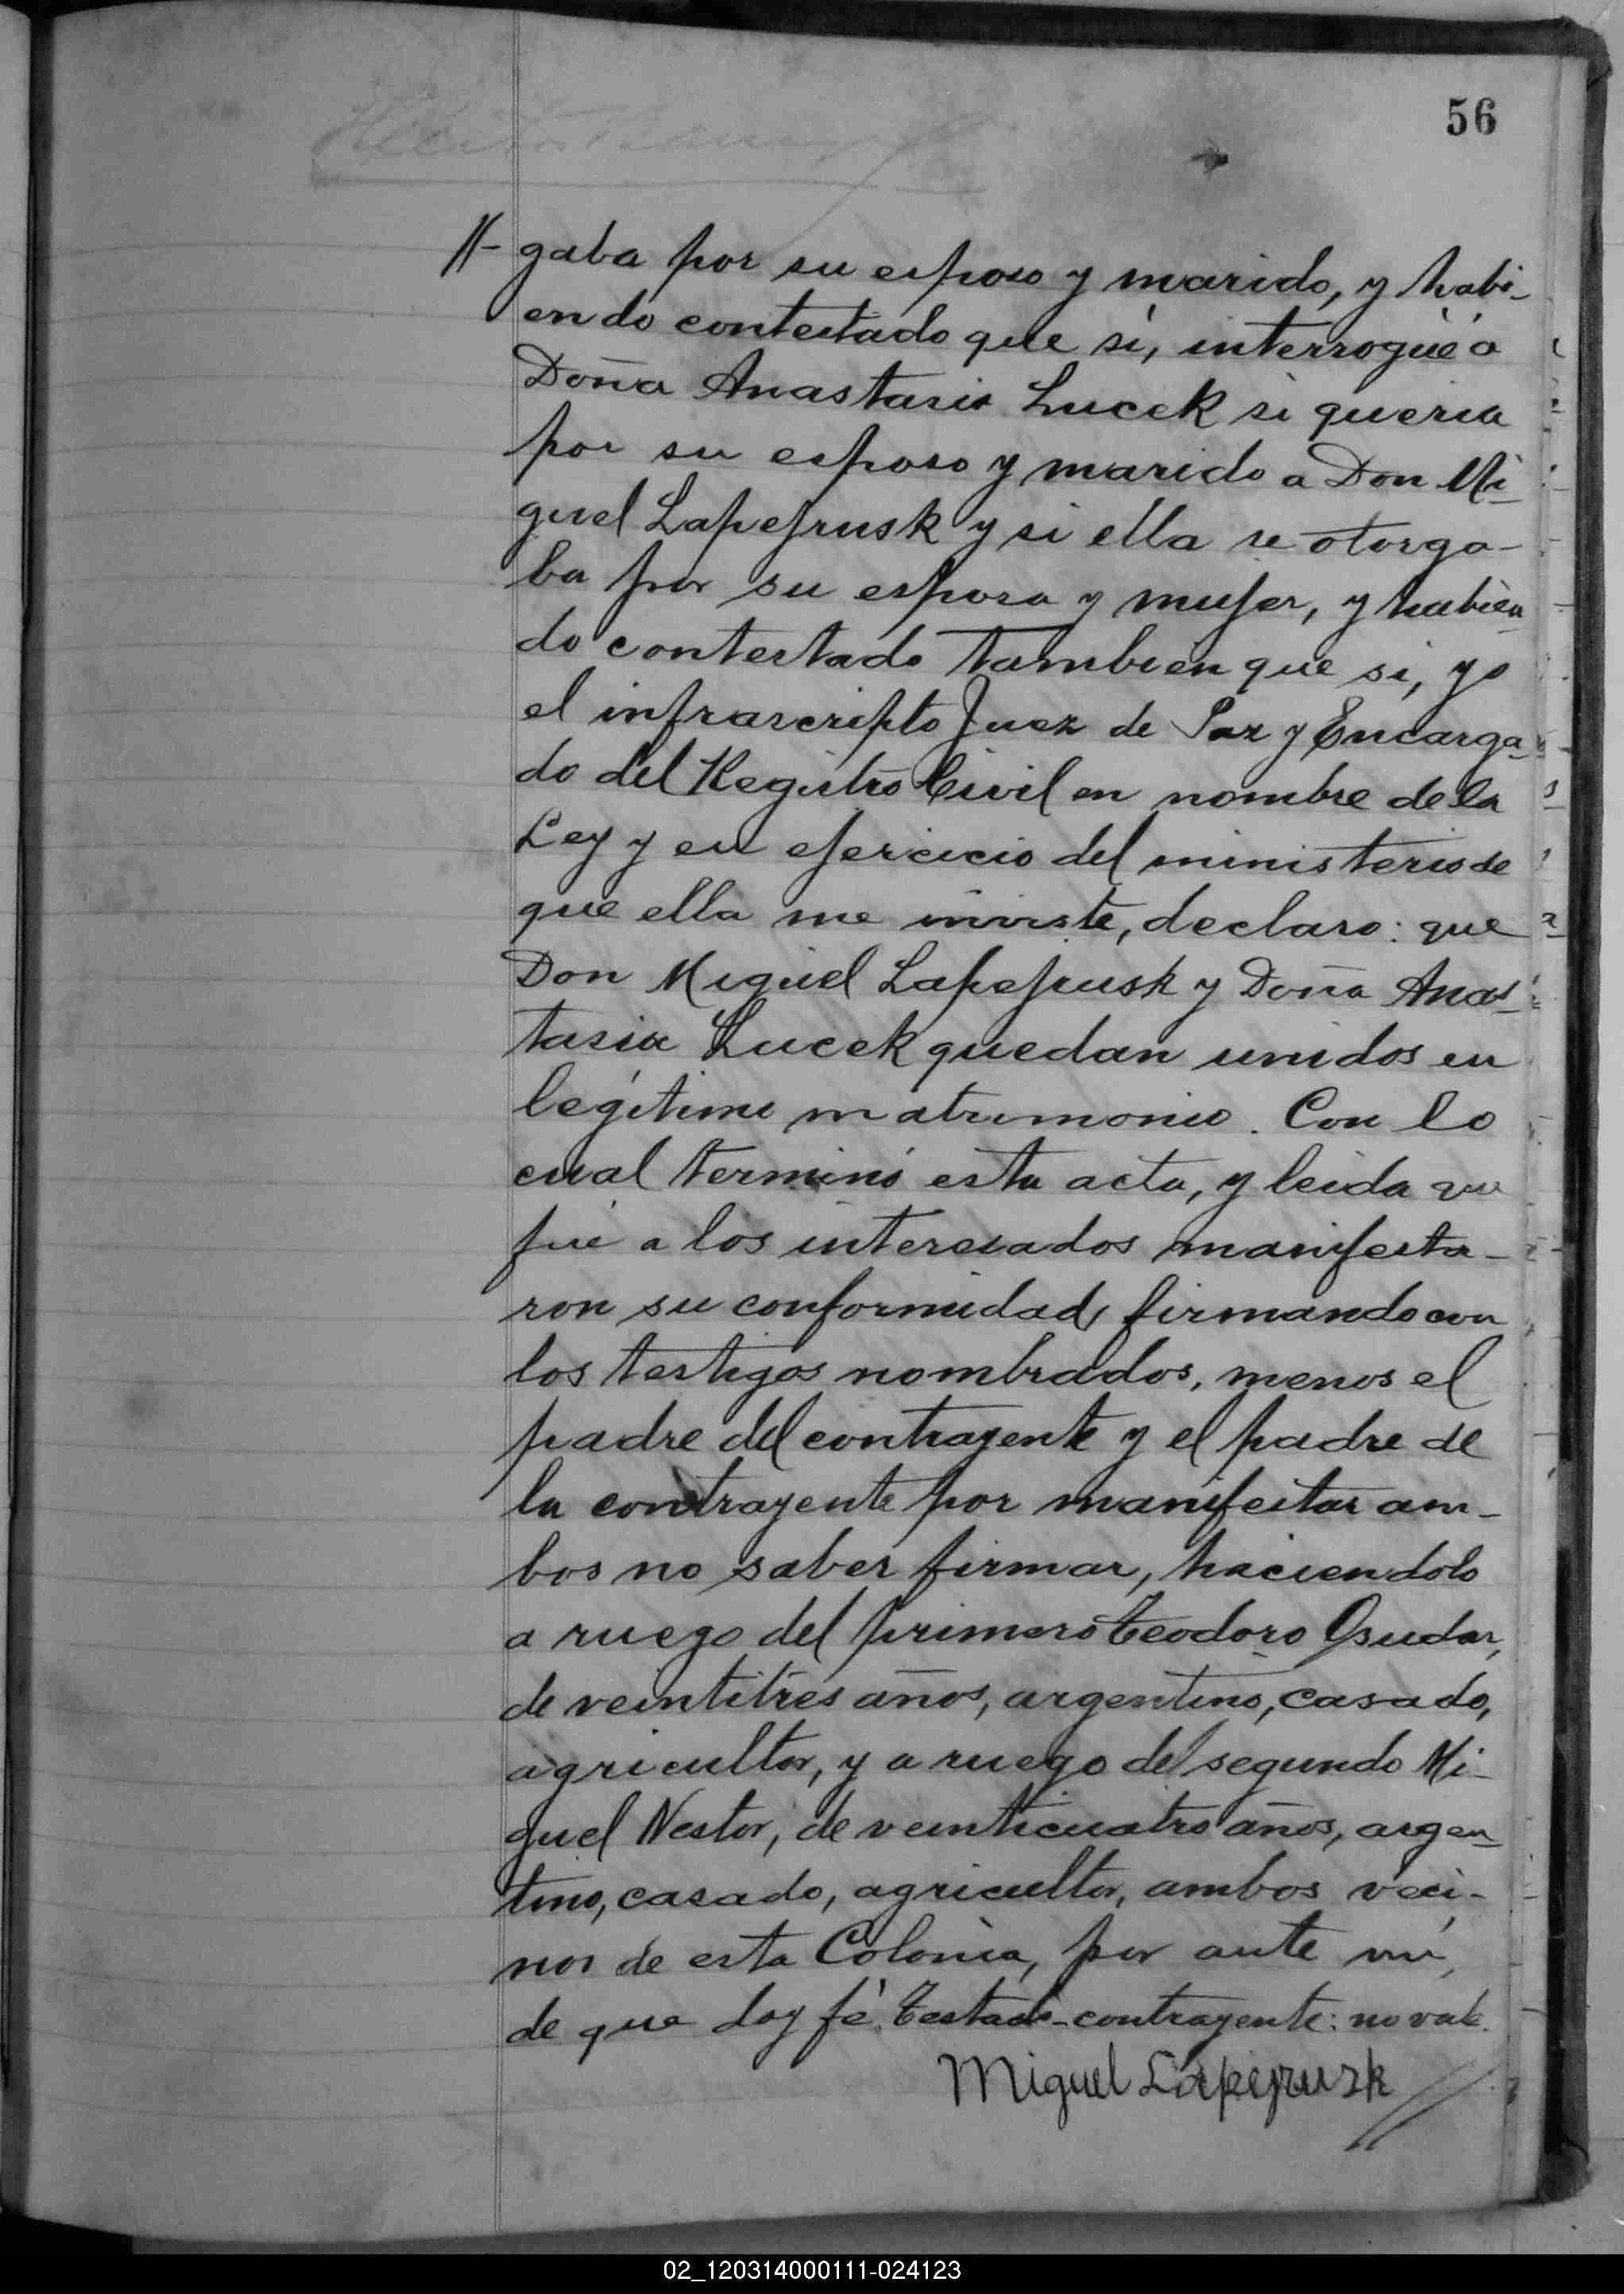 56
//- gaba por su esposo y marido, y habi-
endo contestado que sí, interrogué á
Doña Anastasia Lucek si queria
por su esposo y marido a Don Mi-
guel Lapejrusk y si ella se otorga-
ba por su esposa y mujer, y habien
do contestado tambien que si, yo
el infrascripto Juez de Paz y Encarga-
do del Registro Civil en nombre de la
Ley y en ejercicio del ministerio de
que ella me inviste, declaro: que
Don Miguel Lapejrusk y Doña Anas-
tasia Lucek quedan unidos en
legítimo matrimonio. Con lo
cual terminó esta acta, y leida que
fué a los interesados manifesta-
ron su conformidad, firmando con
los testigos nombrados, menos el
padre del contrayente y el padre de
la contrayente por manifestar am-
bos no saber firmar, haciendolo
a ruego del primero Teodoro
de veintitrés años, argentino, casado,
agricultor, y a ruego del segundo Mi-
guel Nestor, de veinticuatro años, argen-
tino, casado, agricultor, ambos veci-
nos de esta Colonia, por ante mí,
de que doy fé. Testado-contrayente: no vale.
Miguel Lapejrusk
02_120314000111-024123